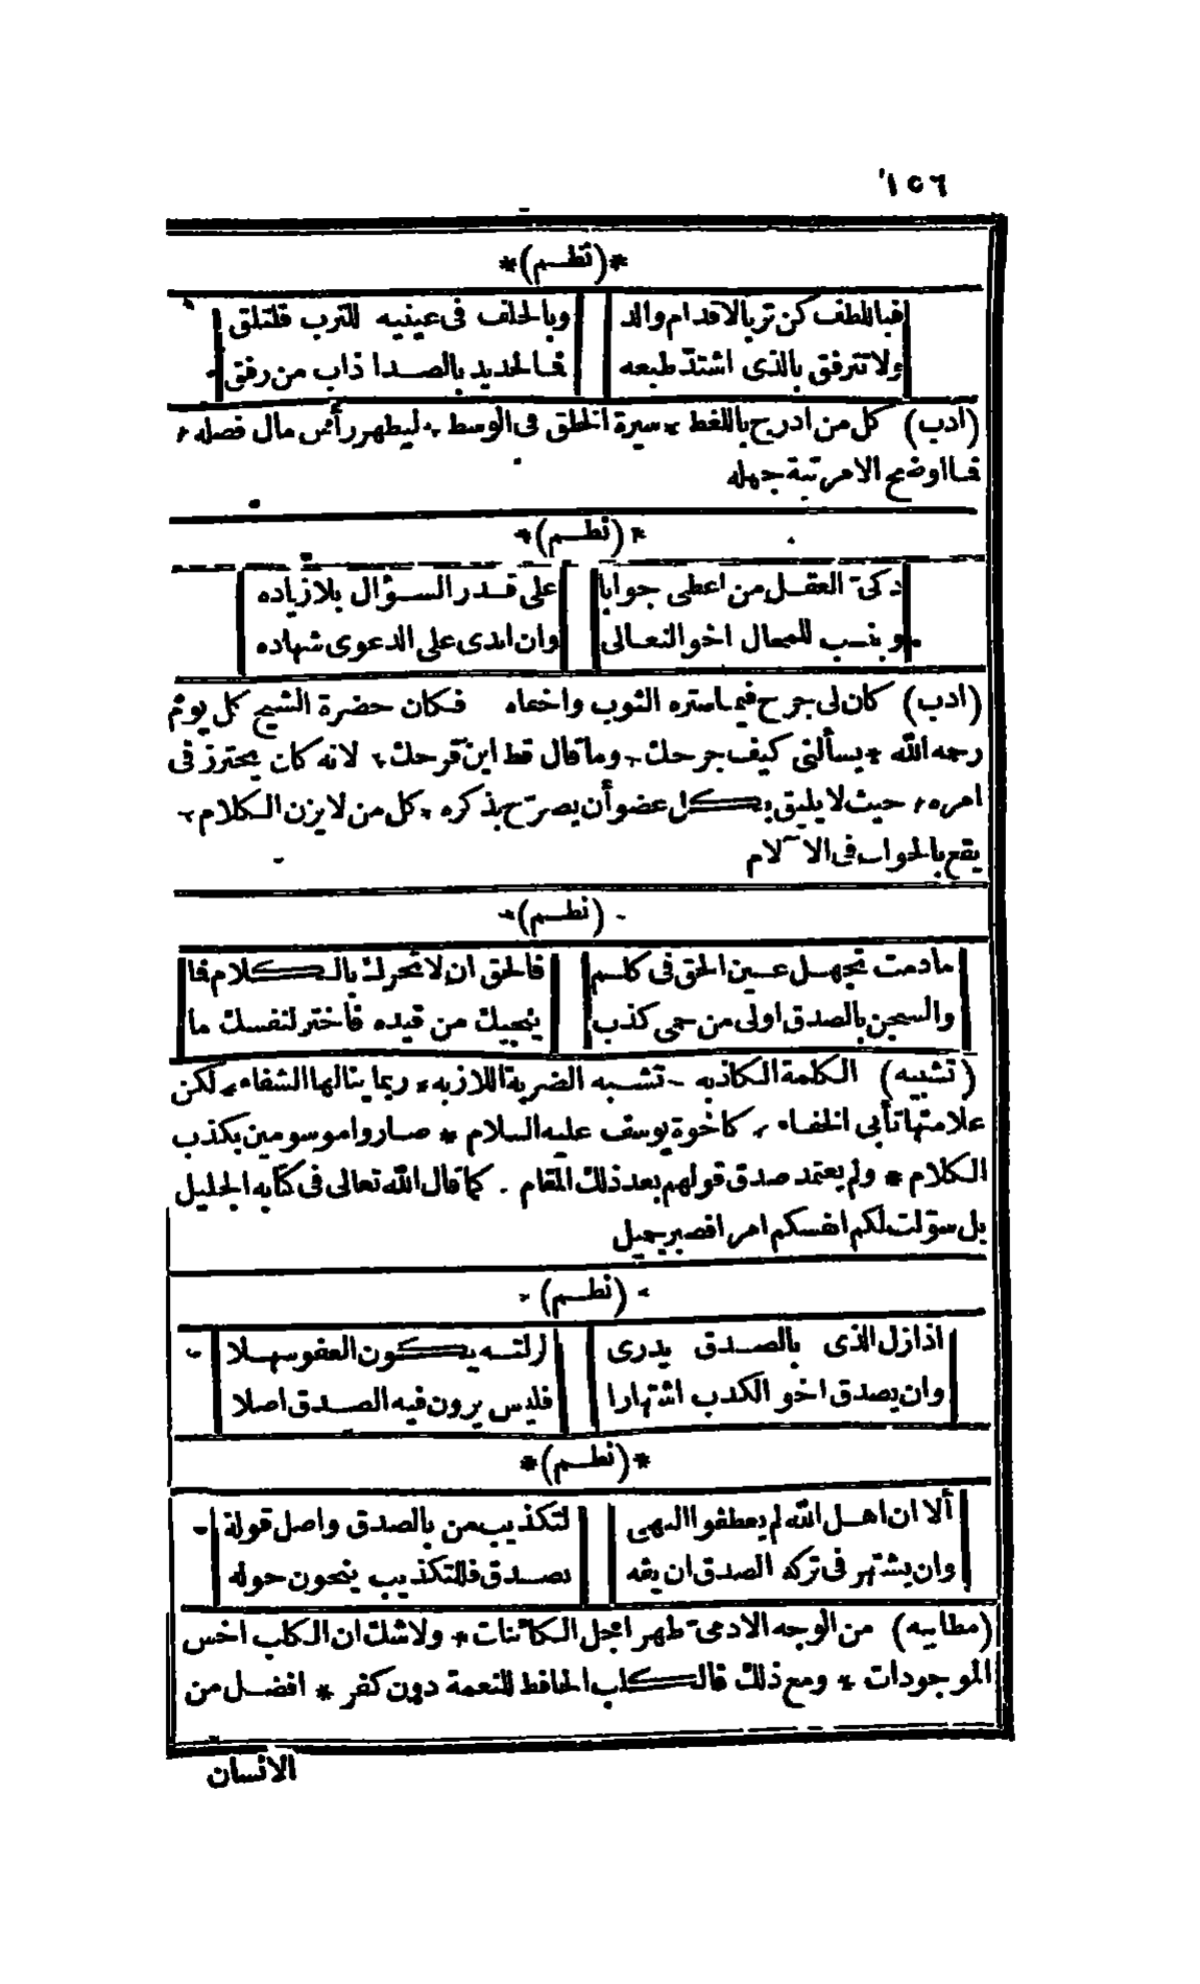 ١٥٦
*(نظم)*
فباللطف كن ترب الاقدام والد وبالخلف فى عينيه للترب فلتلق
ولا تترفق بالذى اشتد طبعه فالحديد بالصدا ذاب من رفق
(ادب) كل من ادرج باللغط * سيرة الخلق فى الوسط * ليظهر رأس مال فضله *
فما اوضح الا مرتبة جهله
*(نظم)*
ذكىّ العقل من اعطى جوابا على قدر السؤال بلا زياده
وينسب للمحال اخو التعالى وان ابدى على الدعوى شهاده
(ادب) كان لى جرح فيما ستره الثوب واخفاه فكان حضرة الشيخ كل يوم
رحمه الله * يسألنى كيف جرحك * وما قال قط اين قرحك * لانه كان يحترز فى
امره * حيث لا يليق بكل عضو أن يصرّح بذكره * كل من لا يزن الكلام *
يقع بالجواب فى الآلام
*(نظم)*
ما دمت تجهل عين الحق فى كلم فالحق ان لا تحرك بالكلام فا
والسجن بالصدق اولى من حمى كذب ينجيك من قيده فاختر لنفسك ما
(تشبيه) الكلمة الكاذبه * تشبه الضربة اللازبه * ربما ينالها الشفاء * لكن
علامتها تأبى الخفاء * كاخوة يوسف عليه السلام * صاروا موسومين بكذب
الكلام * ولم يعتمد صدق قولهم بعد ذلك المقام * كما قال الله تعالى فى كتابه الجليل
بل سوّلت لكم انفسكم امرا فصبر جميل
*(نظم)*
اذا زل الذى بالصدق يدرى لزلته يكون العفو سهلا
وان يصدق اخو الكذب اشتهارا فليس يرون فيه الصدق اصلا
*(نظم)*
ألا ان اهل الله لم يعطفوا النهى لتكذيب من بالصدق واصل قوله
وان يشتهر فى تركه الصدق ان يفه بصدق فللتكذيب ينحون حوله
(مطايبه) من الوجه الادمىّ ظهر اجل الكائنات * ولا شك ان الكلب اخس
الموجودات * ومع ذلك فالكلب الحافظ للنعمة دون كفر * افضل من
الانسان